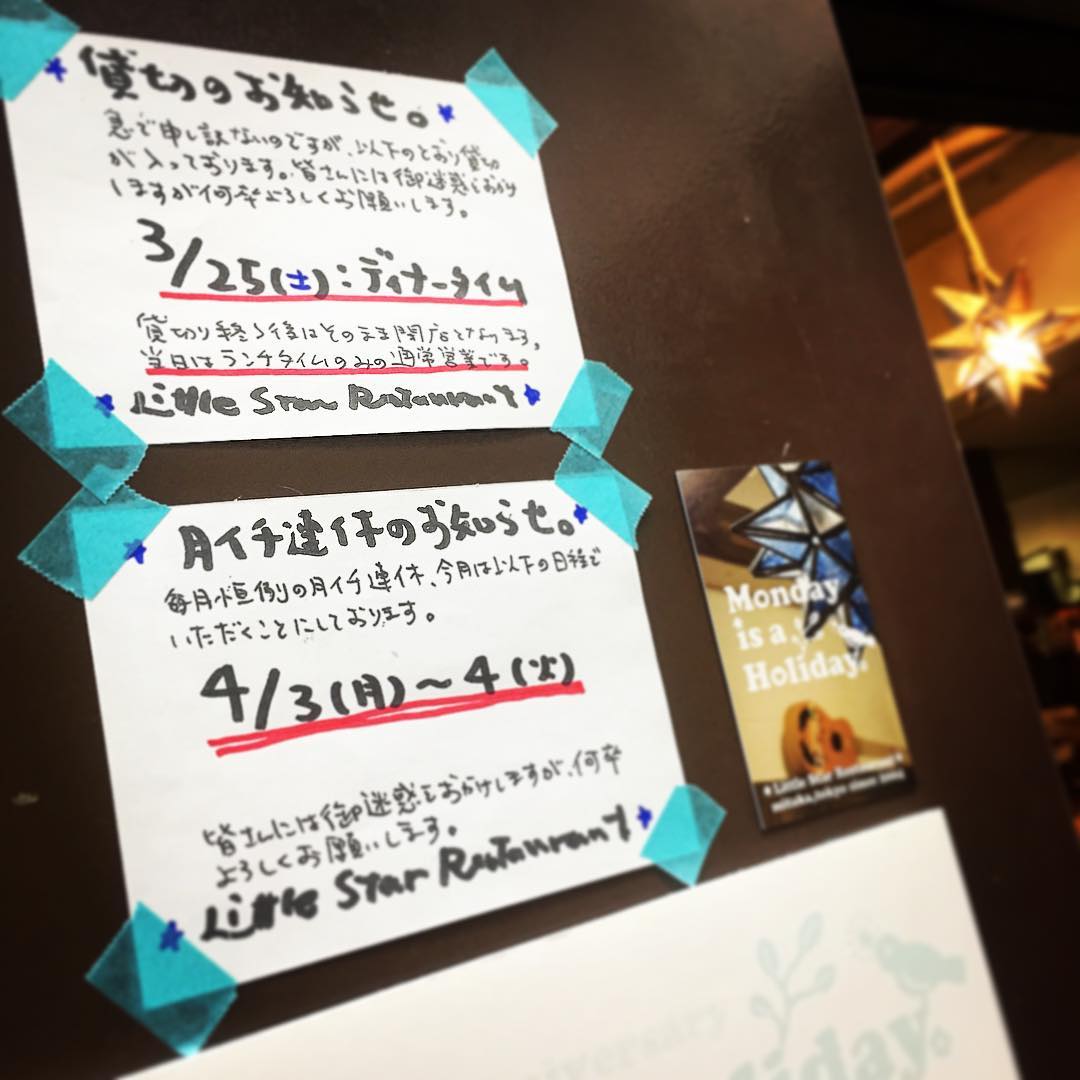 貸切のお知らせ。
急で申し訳ないのですが、以下のとおり貸切
が入っております。皆さんには御迷惑をおかけ
しますが何卒よろしくお願いします。
3/25(土):ディナータイム
貸切り終了後はそのまま閉店となります。
当日はランチタイムのみの通常営業です。
Little Star Restaurant
月イチ連休のお知らせ。
毎月恒例の月イチ連休、今月は以下の日程で
いただくことにしております。
4/3(月)〜4(火)
皆さんには御迷惑をおかけしますが、何卒
よろしくお願いします。
Little Star Restaurant
Monday
is a
Holiday.
Little Star Restaurant
mitaka, tokyo since 2004
niversary
liday.